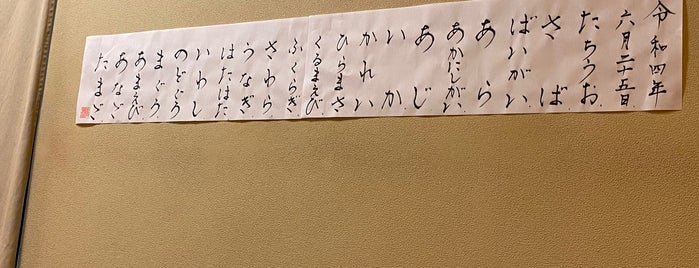 令和四年
六月二十五日
たちうお
さば
ばいがい
あら
あかにしがい
あじ
いか
かれい
ひらまさ
くるまえび
ふくらぎ
さわら
うなぎ
はたはた
いわし
のどぐろ
まぐろ
あまえび
あなご
たまご